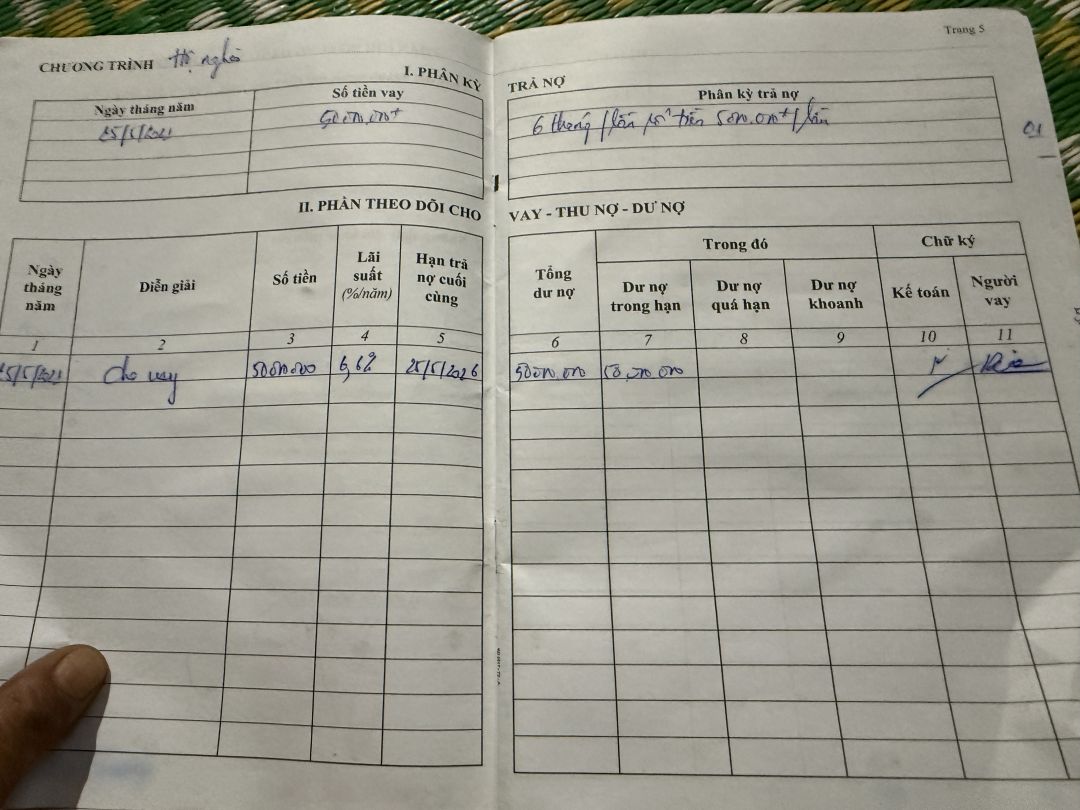 Trang 5
CHƯƠNG TRÌNH Hộ nghèo
I. PHÂN KỲ TRẢ NỢ
Ngày tháng năm Số tiền vay Phân kỳ trả nợ
25/5/2021 50.000.000đ 6 tháng/lần số tiền 5.000.000đ/lần
01
II. PHẦN THEO DÕI CHO VAY - THU NỢ - DƯ NỢ
Ngày tháng năm Diễn giải Số tiền Lãi suất (%/năm) Hạn trả nợ cuối cùng Tổng dư nợ Trong đó Chữ ký
Dư nợ trong hạn Dư nợ quá hạn Dư nợ khoanh Kế toán Người vay
1 2 3 4 5 6 7 8 9 10 11
25/5/2021 Cho vay 50.000.000 6,6% 25/5/2026 50.000.000 50.000.000